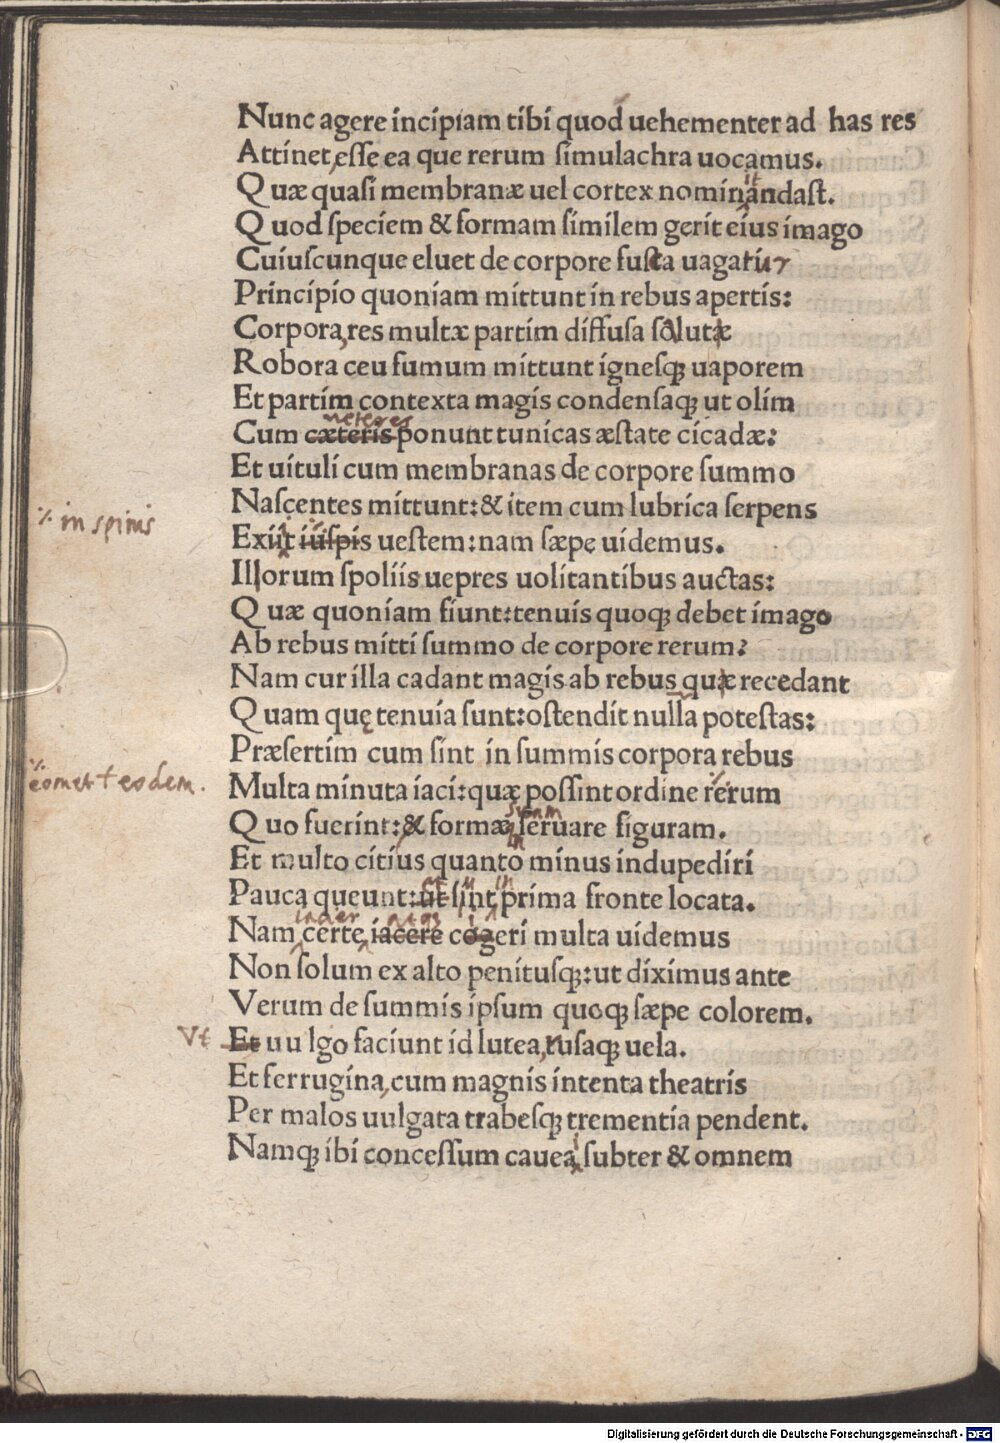 Nunc agere incipiam tibi quod uehementer ad has res
Attinet, esse ea que rerum simulachra uocamus.
Quæ quasi membranæ uel cortex nominandast.
it
Quod speciem & formam similem gerit eius imago
Cuiuscunque eluet de corpore fusta uagatur
Principio quoniam mittunt in rebus apertis:
Corpora, res multæ partim diffusa solutæ
Robora ceu fumum mittunt ignesqꝫ uaporem
Et partim contexta magis condensaqꝫ ut olim
ueteres
Cum cæteris ponunt tunicas æstate cicadæ:
Et uituli cum membranas de corpore summo
Nascentes mittunt: & item cum lubrica serpens
in spinis
Exiit iuspis uestem: nam sæpe uidemus.
Illorum spoliis uepres uolitantibus auctas:
Quæ quoniam fiunt: tenuis quoqꝫ debet imago
Ab rebus mitti summo de corpore rerum?
Nam cur illa cadant magis ab rebus quæ recedant
Quam quę tenuia sunt: ostendit nulla potestas:
Præsertim cum sint in summis corpora rebus
eomet eodem.
Multa minuta iaci: quæ possint ordine rerum
Quo fuerint: & formæ seruare figuram.
suam
Et multo citius quanto minus indupediri
Pauca queunt: ut sint prima fronte locata.
in
Nam certe iacere cogeri multa uidemus
Non solum ex alto penitusqꝫ: ut diximus ante
Verum de summis ipsum quoqꝫ sæpe colorem.
Vt
Et uulgo faciunt id lutea, rusaqꝫ uela.
Et ferrugina, cum magnis intenta theatris
Per malos uulgata trabesqꝫ trementia pendent.
Namqꝫ ibi concessum caueai subter & omnem
Digitalisierung gefördert durch die Deutsche Forschungsgemeinschaft - DFG